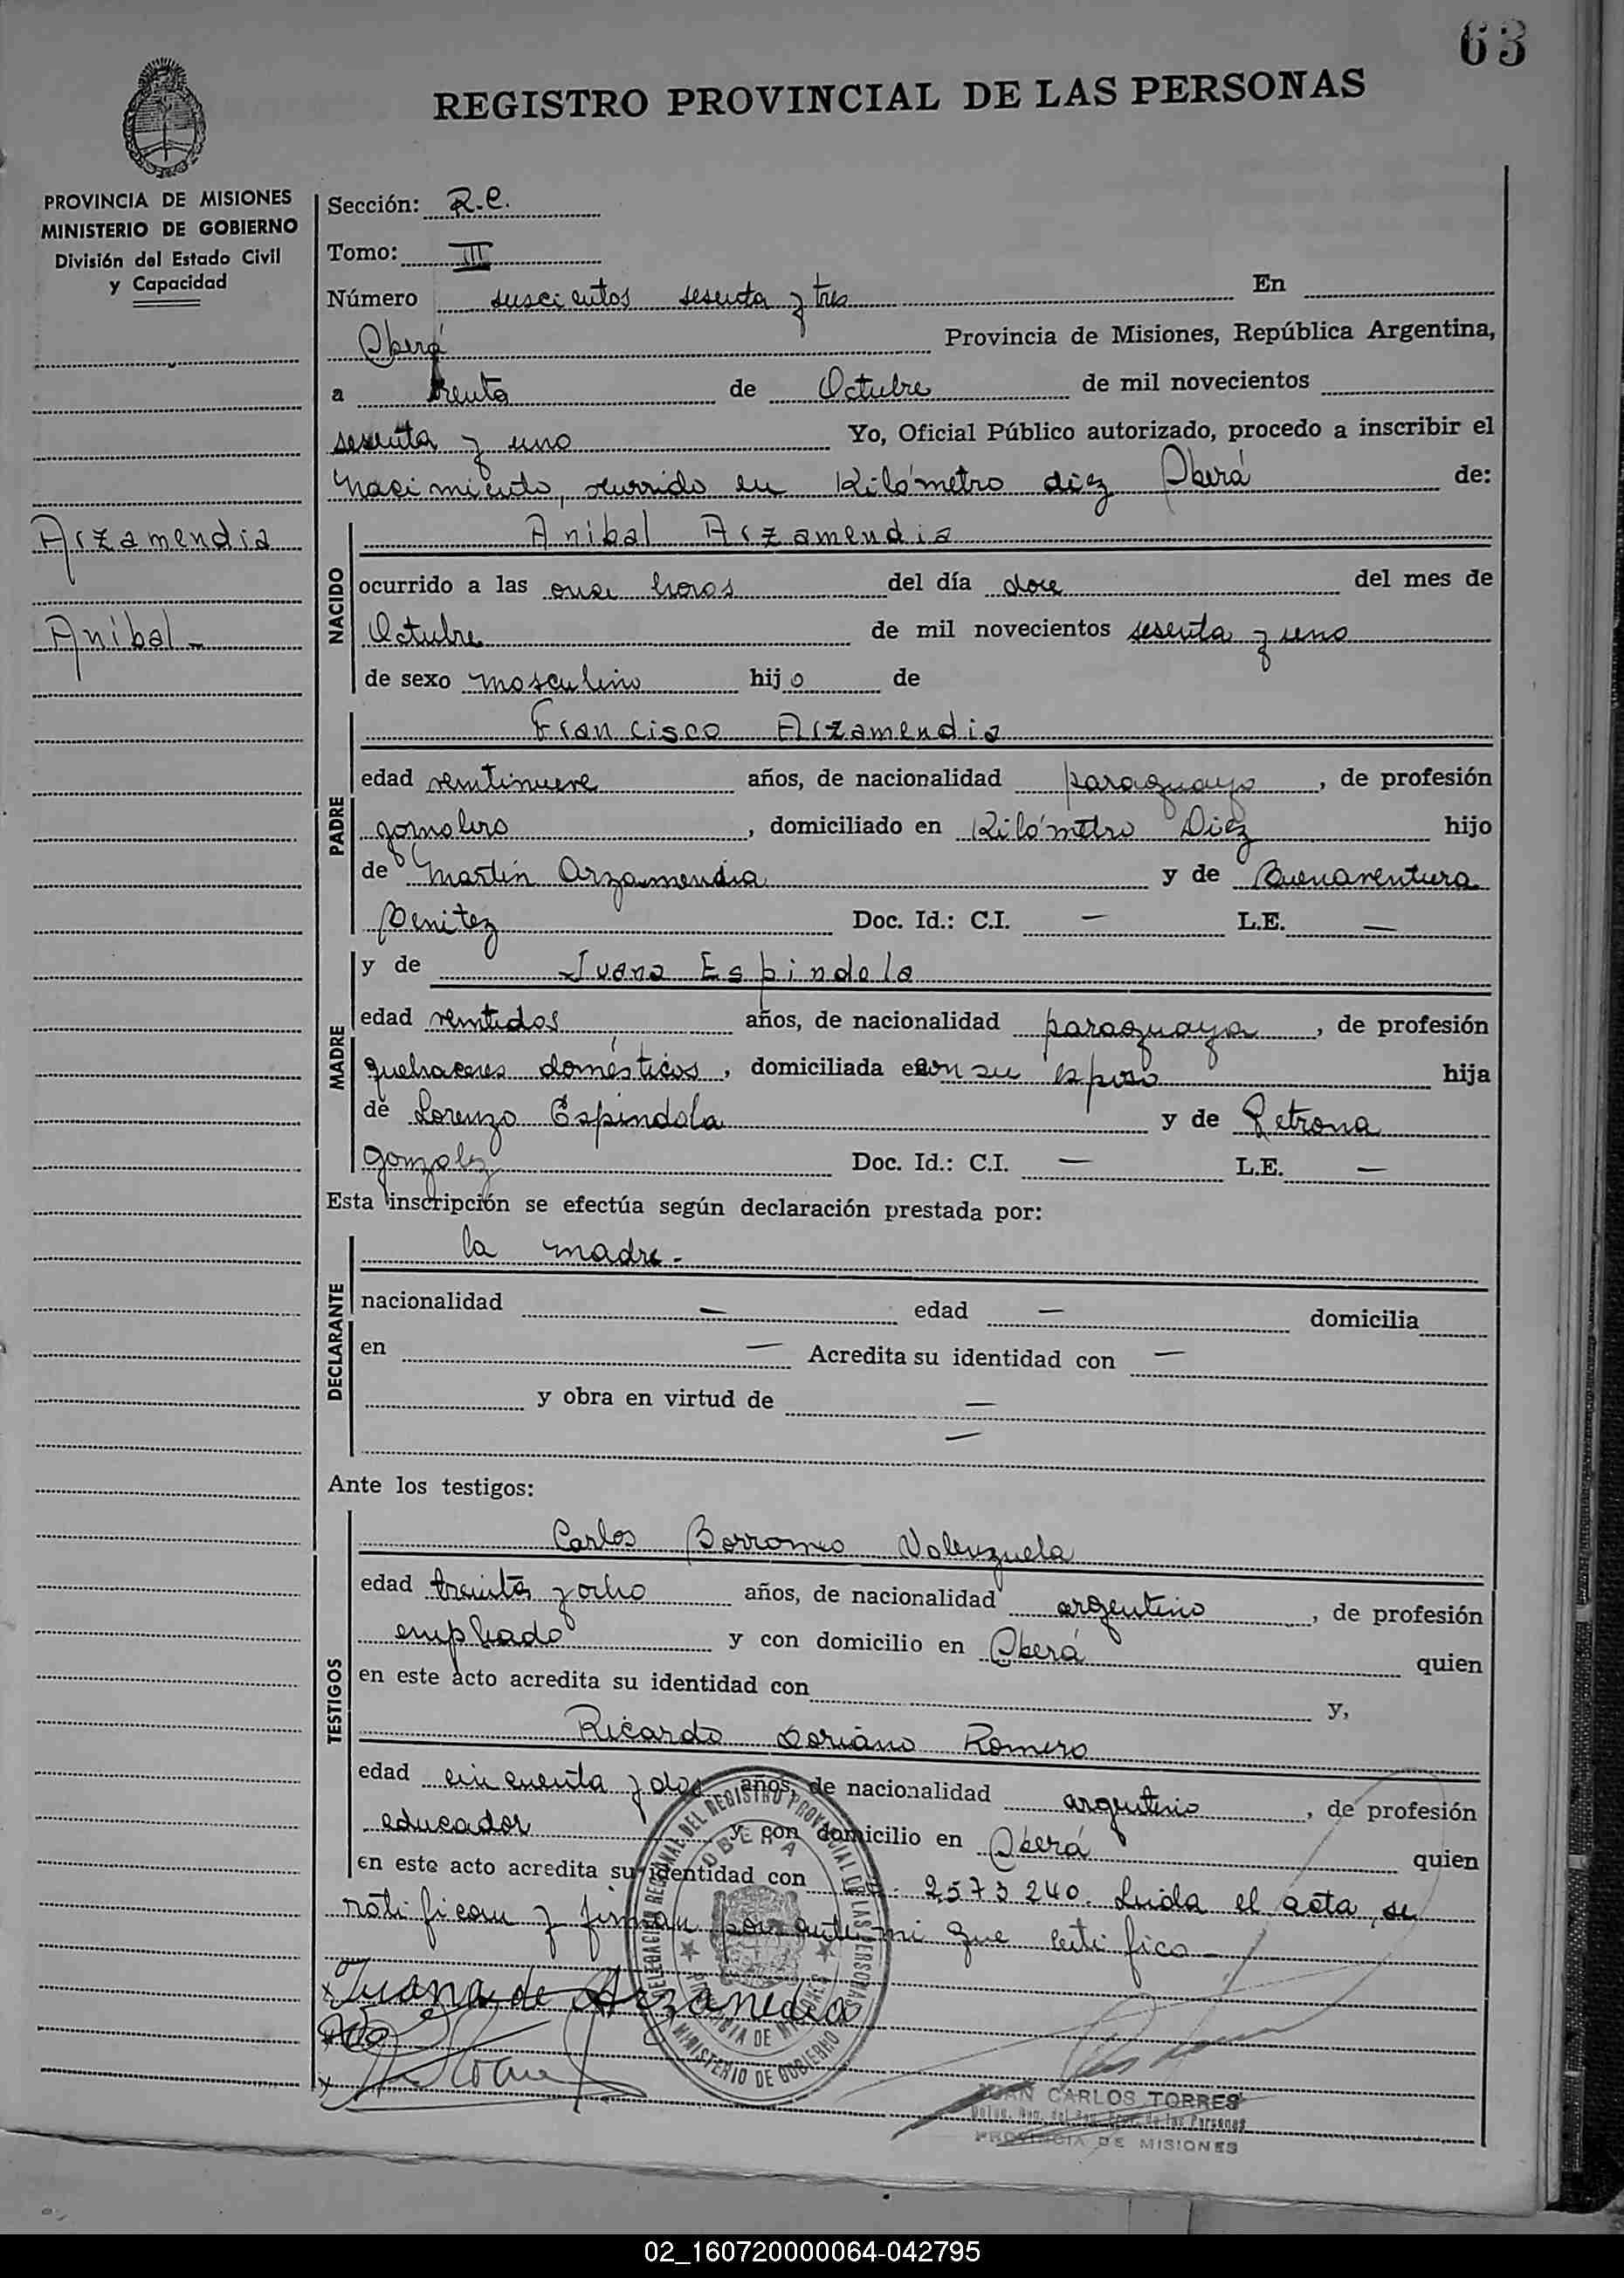 63
REGISTRO PROVINCIAL DE LAS PERSONAS
PROVINCIA DE MISIONES
MINISTERIO DE GOBIERNO
División del Estado Civil
y Capacidad
Arzamendia
Aníbal -
Sección: R.C.
Tomo: III
Número suscientos sesenta y tres En
Oberá Provincia de Misiones, República Argentina,
a treinta de Octubre de mil novecientos
sesenta y uno Yo, Oficial Público autorizado, procedo a inscribir el
Nacimiento, ocurrido en Kilómetro diez Oberá de:
NACIDO
Aníbal Arzamendia
ocurrido a las once horas del día doce del mes de
Octubre de mil novecientos sesenta y uno
de sexo masculino hijo de
PADRE
Francisco Arzamendia
edad veintinueve años, de nacionalidad paraguayo, de profesión
jornalero, domiciliado en Kilómetro Diez hijo
de Martín Arzamendia y de Buenaventura
Benitez Doc. Id.: C.I. — L.E. —
MADRE
y de Juana Espíndola
edad veintidos años, de nacionalidad paraguaya, de profesión
quehaceres domésticos, domiciliada con su esposo hija
de Lorenzo Espíndola y de Petrona
Gonzalez Doc. Id.: C.I. — L.E. —
Esta inscripción se efectúa según declaración prestada por:
DECLARANTE
la madre.-
nacionalidad — edad — domicilia
en — Acredita su identidad con —
y obra en virtud de —
—
Ante los testigos:
TESTIGOS
Carlos Borromeo Valenzuela
edad treinta y ocho años, de nacionalidad argentino, de profesión
empleado y con domicilio en Oberá quien
en este acto acredita su identidad con y,
Ricardo Romero
edad cincuenta y dos años, de nacionalidad argentino, de profesión
educador y con domicilio en Oberá quien
en este acto acredita su identidad con 2.573.240. Leida el acta, se
ratifican y firman por ante mi que certifico -
Juana de Arzamedia
DELEGACION REGIONAL DEL REGISTRO PROVINCIAL DE LAS PERSONAS
OBERA
PROVINCIA DE MISIONES
MINISTERIO DE GOBIERNO
JUAN CARLOS TORRES
Deleg. Reg. del Reg. Prov. de las Personas
PROVINCIA DE MISIONES
02_160720000064-042795